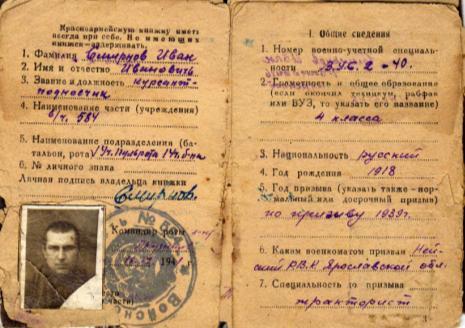 Красноармейскую книжку иметь
всегда при себе. Не имеющих
книжек—задерживать.
1. Фамилия Смирнов Иван
2. Имя и отчество Иванович
3. Звание и должность курсант
4. Наименование части (учреждения)
в/ч. 584
5. Наименование подразделения (ба-
тальон, рота)
6. № личного знака
Личная подпись владельца книжки
Смирнов.
Командир роты
I. Общие сведения
1. Номер военно-учетной специаль-
ности В.У.С. 2-40.
2. Грамотность и общее образование
(если окончил техникум, рабфак
или ВУЗ, то указать его название)
4 класса
3. Национальность русский
4. Год рождения 1918
5. Год призыва (указать также—нор-
мальный или досрочный призыв)
по призыву 1939г.
6. Каким военкоматом призван
Р.В.К Ярославской обл.
7. Специальность до призыва
тракторист